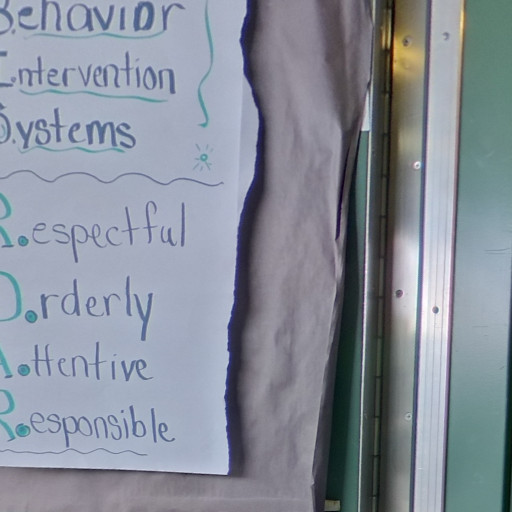 Behavior
Intervention
Systems
R.espectful
O.rderly
A.ttentive
R.esponsible